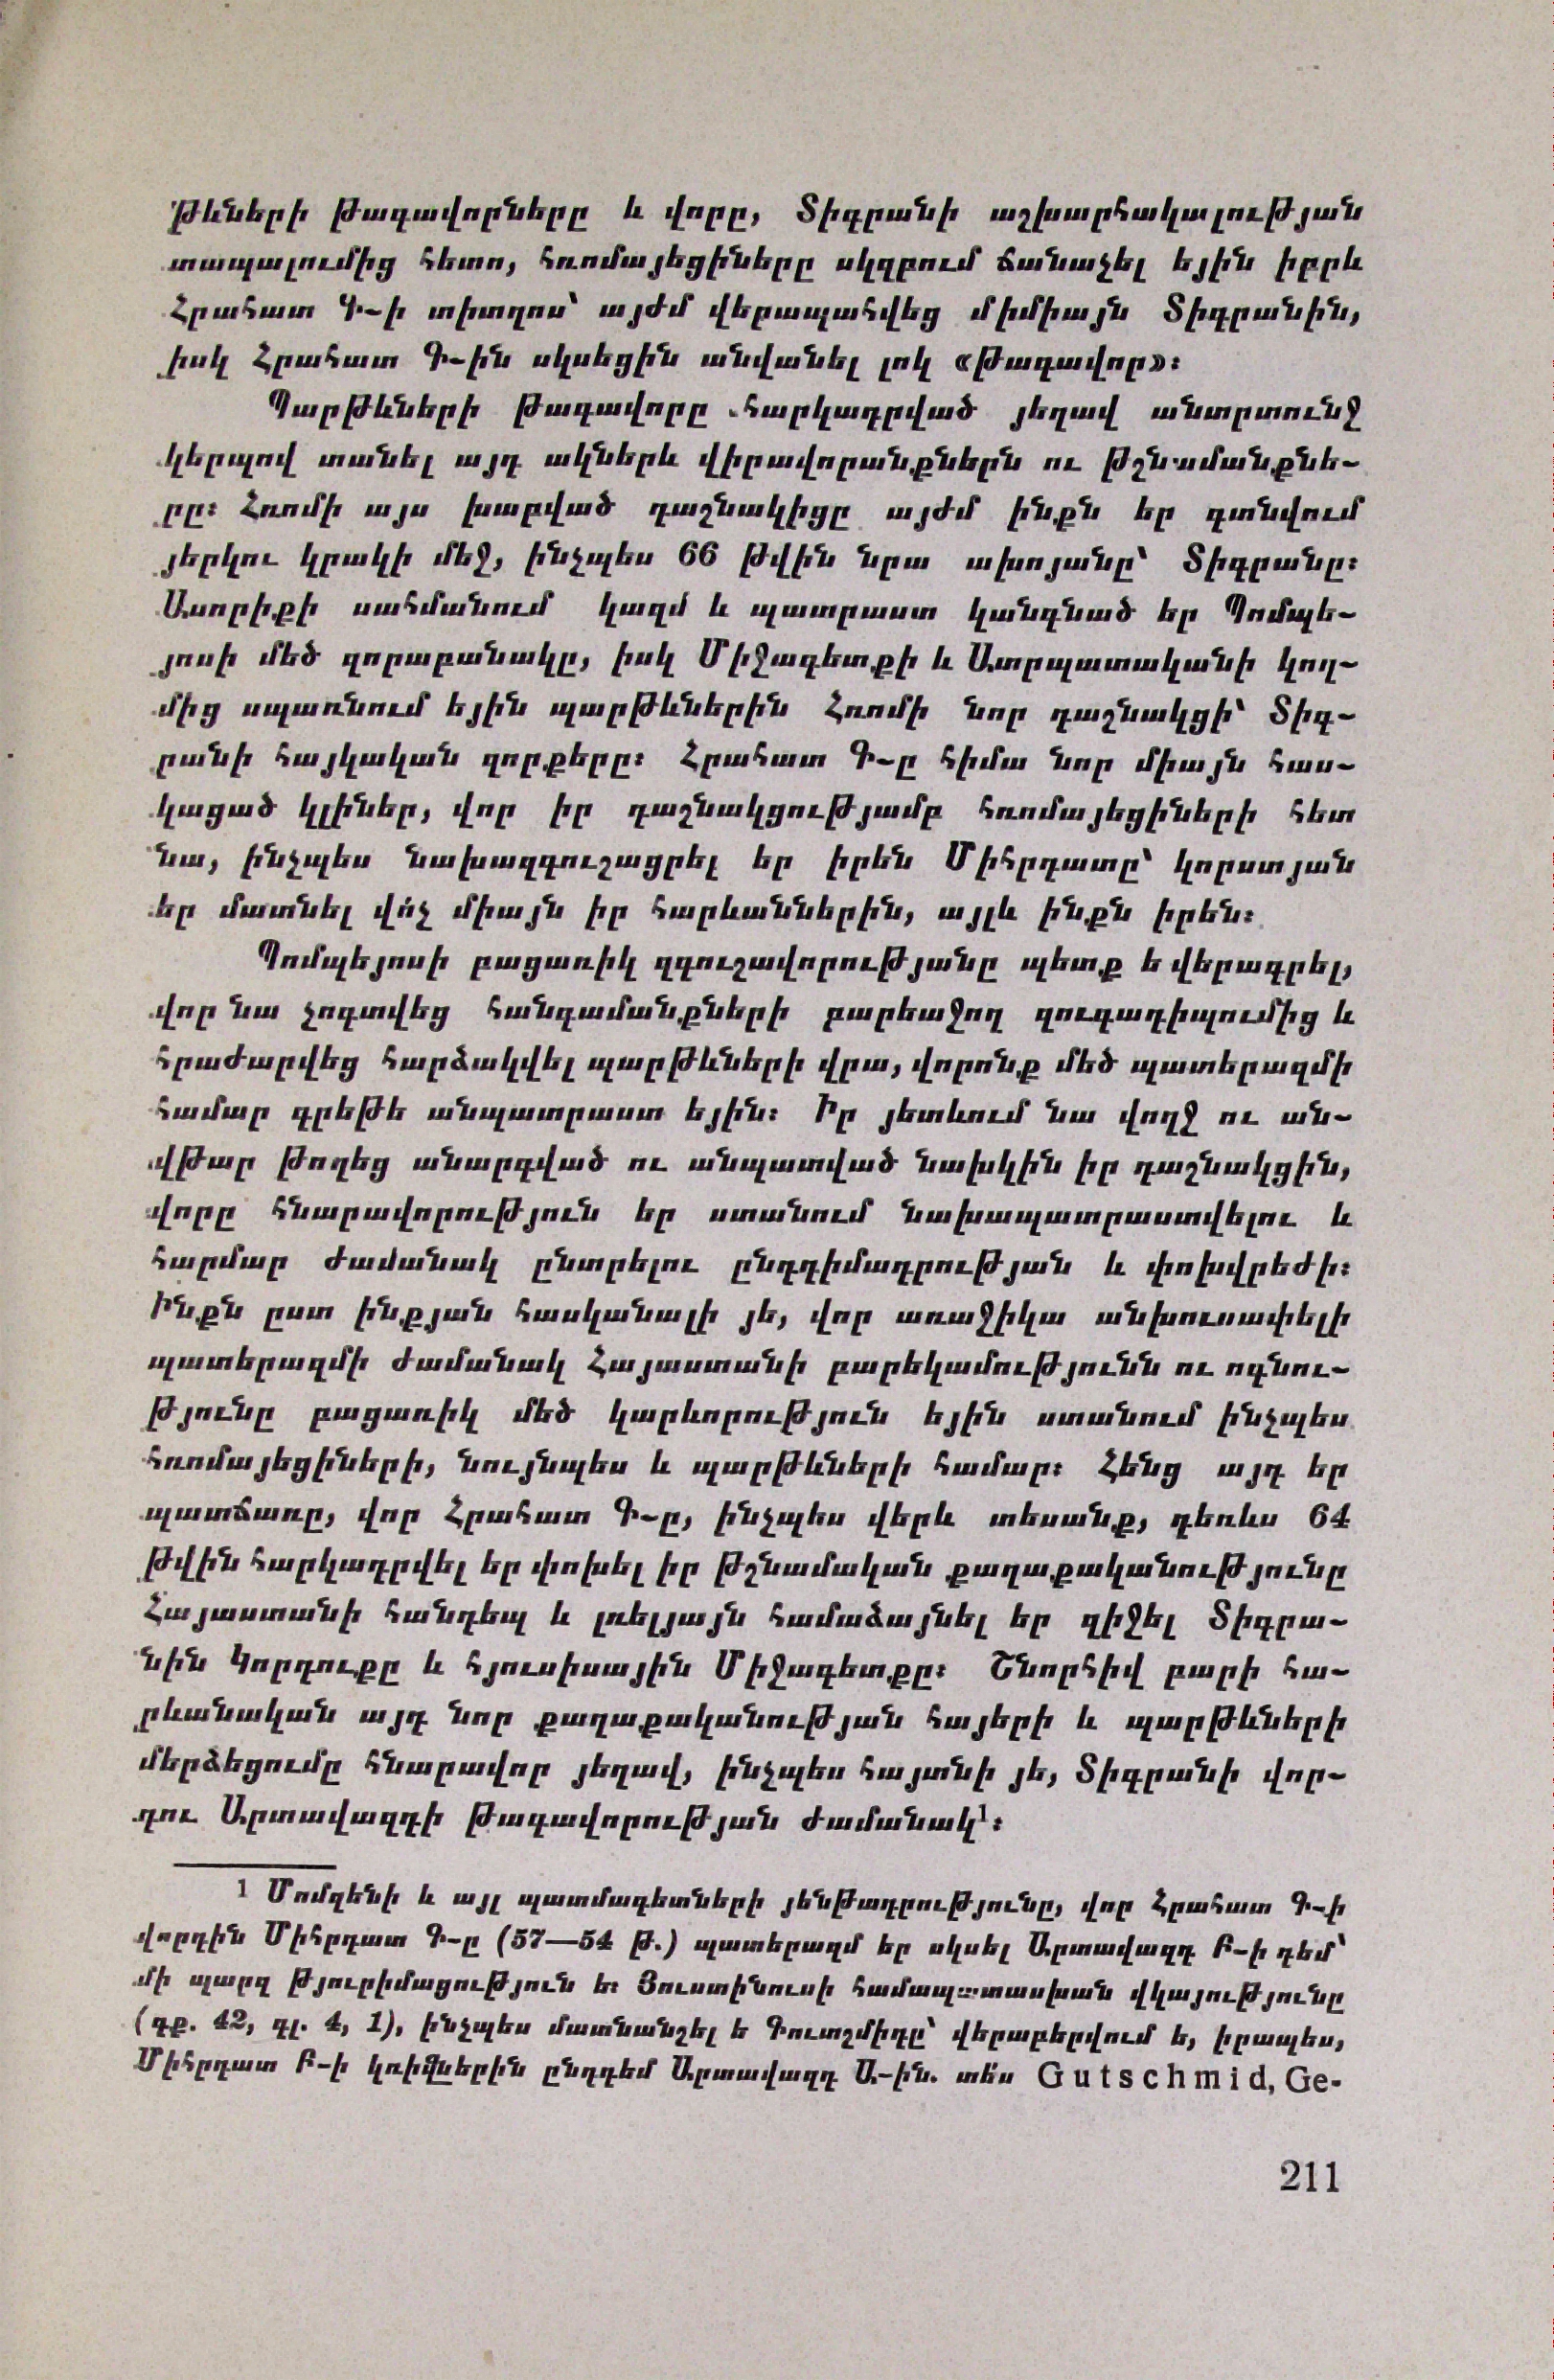 թևների թագավորները և վորը, Տիգրանի աշխարհակալության
տապալումից հետո, հռոմայեցիները սկզբում ճանաչել եյին իբրև
Հրահատ Գ-ի տիտղոս՝ այժմ վերապահվեց միմիայն Տիգրանին,
իսկ Հրահատ Գ-ին սկսեցին անվանել լոկ «թագավոր»։
Պարթևների թագավորը հարկադրված յեղավ անտրտունջ
կերպով տանել այդ ակներև վիրավորանքներն ու թշնամանքնե-
րը։ Հռոմի այս խաբված դաշնակիցը այժմ ինքն եր գտնվում
յերկու կրակի մեջ, ինչպես 66 թվին նրա ախոյանը՝ Տիգրանը։
Ասորիքի սահմանում կազմ և պատրաստ կանգնած եր Պոմպե-
յոսի մեծ զորաբանակը, իսկ Միջագետքի և Ատրպատականի կող-
մից սպառնում եյին պարթևներին Հռոմի նոր դաշնակցի՝ Տիգ-
րանի հայկական զորքերը։ Հրահատ Գ-ը հիմա նոր միայն հաս-
կացած կլիներ, վոր իր դաշնակցությամբ հռոմայեցիների հետ
նա, ինչպես նախազգուշացրել եր իրեն Միհրդատը՝ կորստյան
եր մատնել վո՛չ միայն իր հարևաններին, այլև ինքն իրեն։
Պոմպեյոսի բացառիկ զգուշավորությանը պետք ե վերագրել,
վոր նա չոգտվեց հանգամանքների բարեաջող զուգադիպումից և
հրաժարվեց հարձակվել պարթևների վրա, վորոնք մեծ պատերազմի
համար գրեթե անպատրաստ եյին։ Իր յետևում նա վողջ ու ան-
վթար թողեց անարգված ու անպատված նախկին իր դաշնակցին,
վորը հնարավորություն եր ստանում նախապատրաստվելու և
հարմար ժամանակ ընտրելու ընդդիմադրության և փոխվրեժի։
Ինքն ըստ ինքյան հասկանալի յե, վոր առաջիկա անխուսափելի
պատերազմի ժամանակ Հայաստանի բարեկամությունն ու ոգնու-
թյունը բացառիկ մեծ կարևորություն եյին ստանում ինչպես
հռոմայեցիների, նույնպես և պարթևների համար։ Հենց այդ եր
պատճառը, վոր Հրահատ Գ-ը, ինչպես վերև տեսանք, դեռևս 64
թվին հարկադրվել եր փոխել իր թշնամական քաղաքականությունը
Հայաստանի հանդեպ և լռելյայն համաձայնել եր զիջել Տիգրա-
նին Կորդուքը և հյուսիսային Միջագետքը։ Շնորհիվ բարի հա-
րևանական այդ նոր քաղաքականության հայերի և պարթևների
մերձեցումը հնարավոր յեղավ, ինչպես հայտնի յե, Տիգրանի վոր-
դու Արտավազդի թագավորության ժամանակ¹։
1 Մոմզենի և այլ պատմագետների յենթադրությունը, վոր Հրահատ Գ-ի
վորդին Միհրդատ Գ-ը (57—54 թ.) պատերազմ եր սկսել Արտավազդ Բ-ի դեմ՝
մի պարզ թյուրիմացություն ե։ Յուստինուսի համապատասխան վկայությունը
(գք. 42, գլ. 4, 1), ինչպես մատնանշել ե Գուտշմիդը՝ վերաբերվում ե, իրապես,
Միհրդատ Բ-ի կռիվներին ընդդեմ Արտավազդ Ա-ին. տե՛ս Gutschmid, Ge-
211